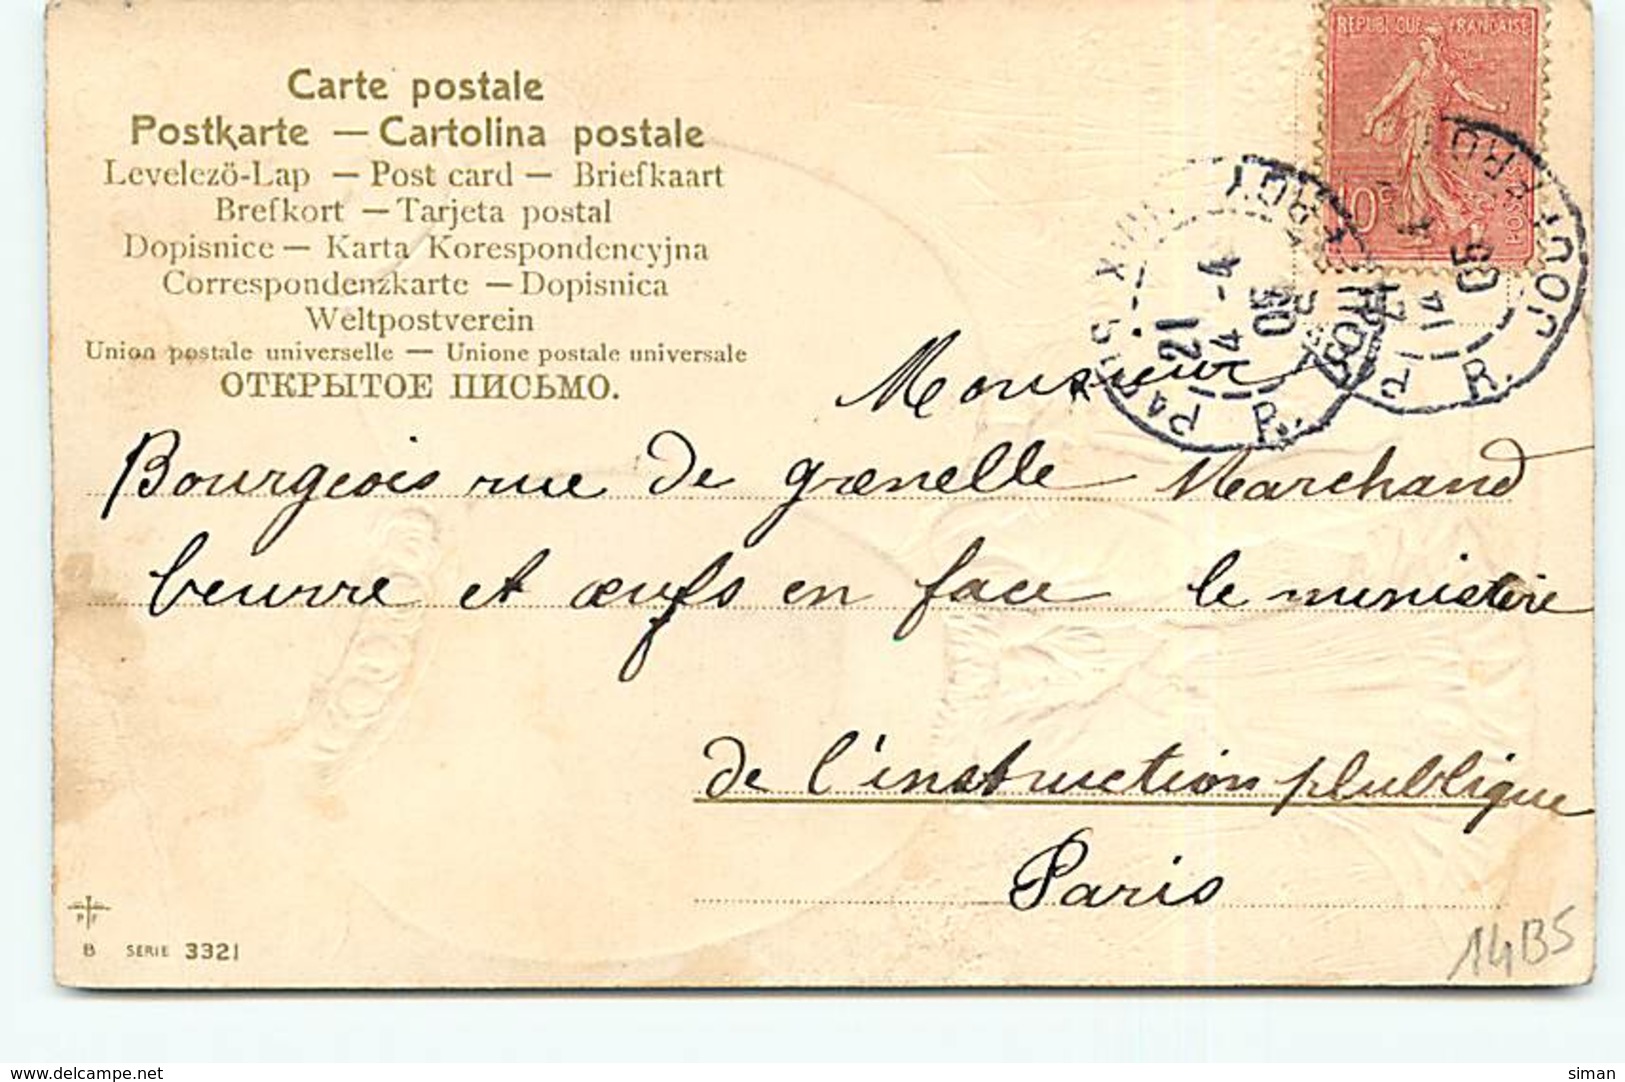 Carte postale
Postkarte — Cartolina postale
Levelező-Lap — Post card — Briefkaart
Brefkort — Tarjeta postal
Dopisnice — Karta Korespondencyjna
Correspondenzkarte — Dopisnica
Weltpostverein
Union postale universelle — Unione postale universale
ОТКРЫТОЕ ПИСЬМО.
REPUBLIQUE FRANÇAISE
10c POSTES
PARIS XVIII
21
14 -4
05
R.
14
05
R.
Monsieur
Bourgeois rue de grenelle Marchand
beurre et œufs en face le ministère
de l'instruction plublique
Paris
PF
B SERIE 3321
14BS
www.delcampe.net
siman